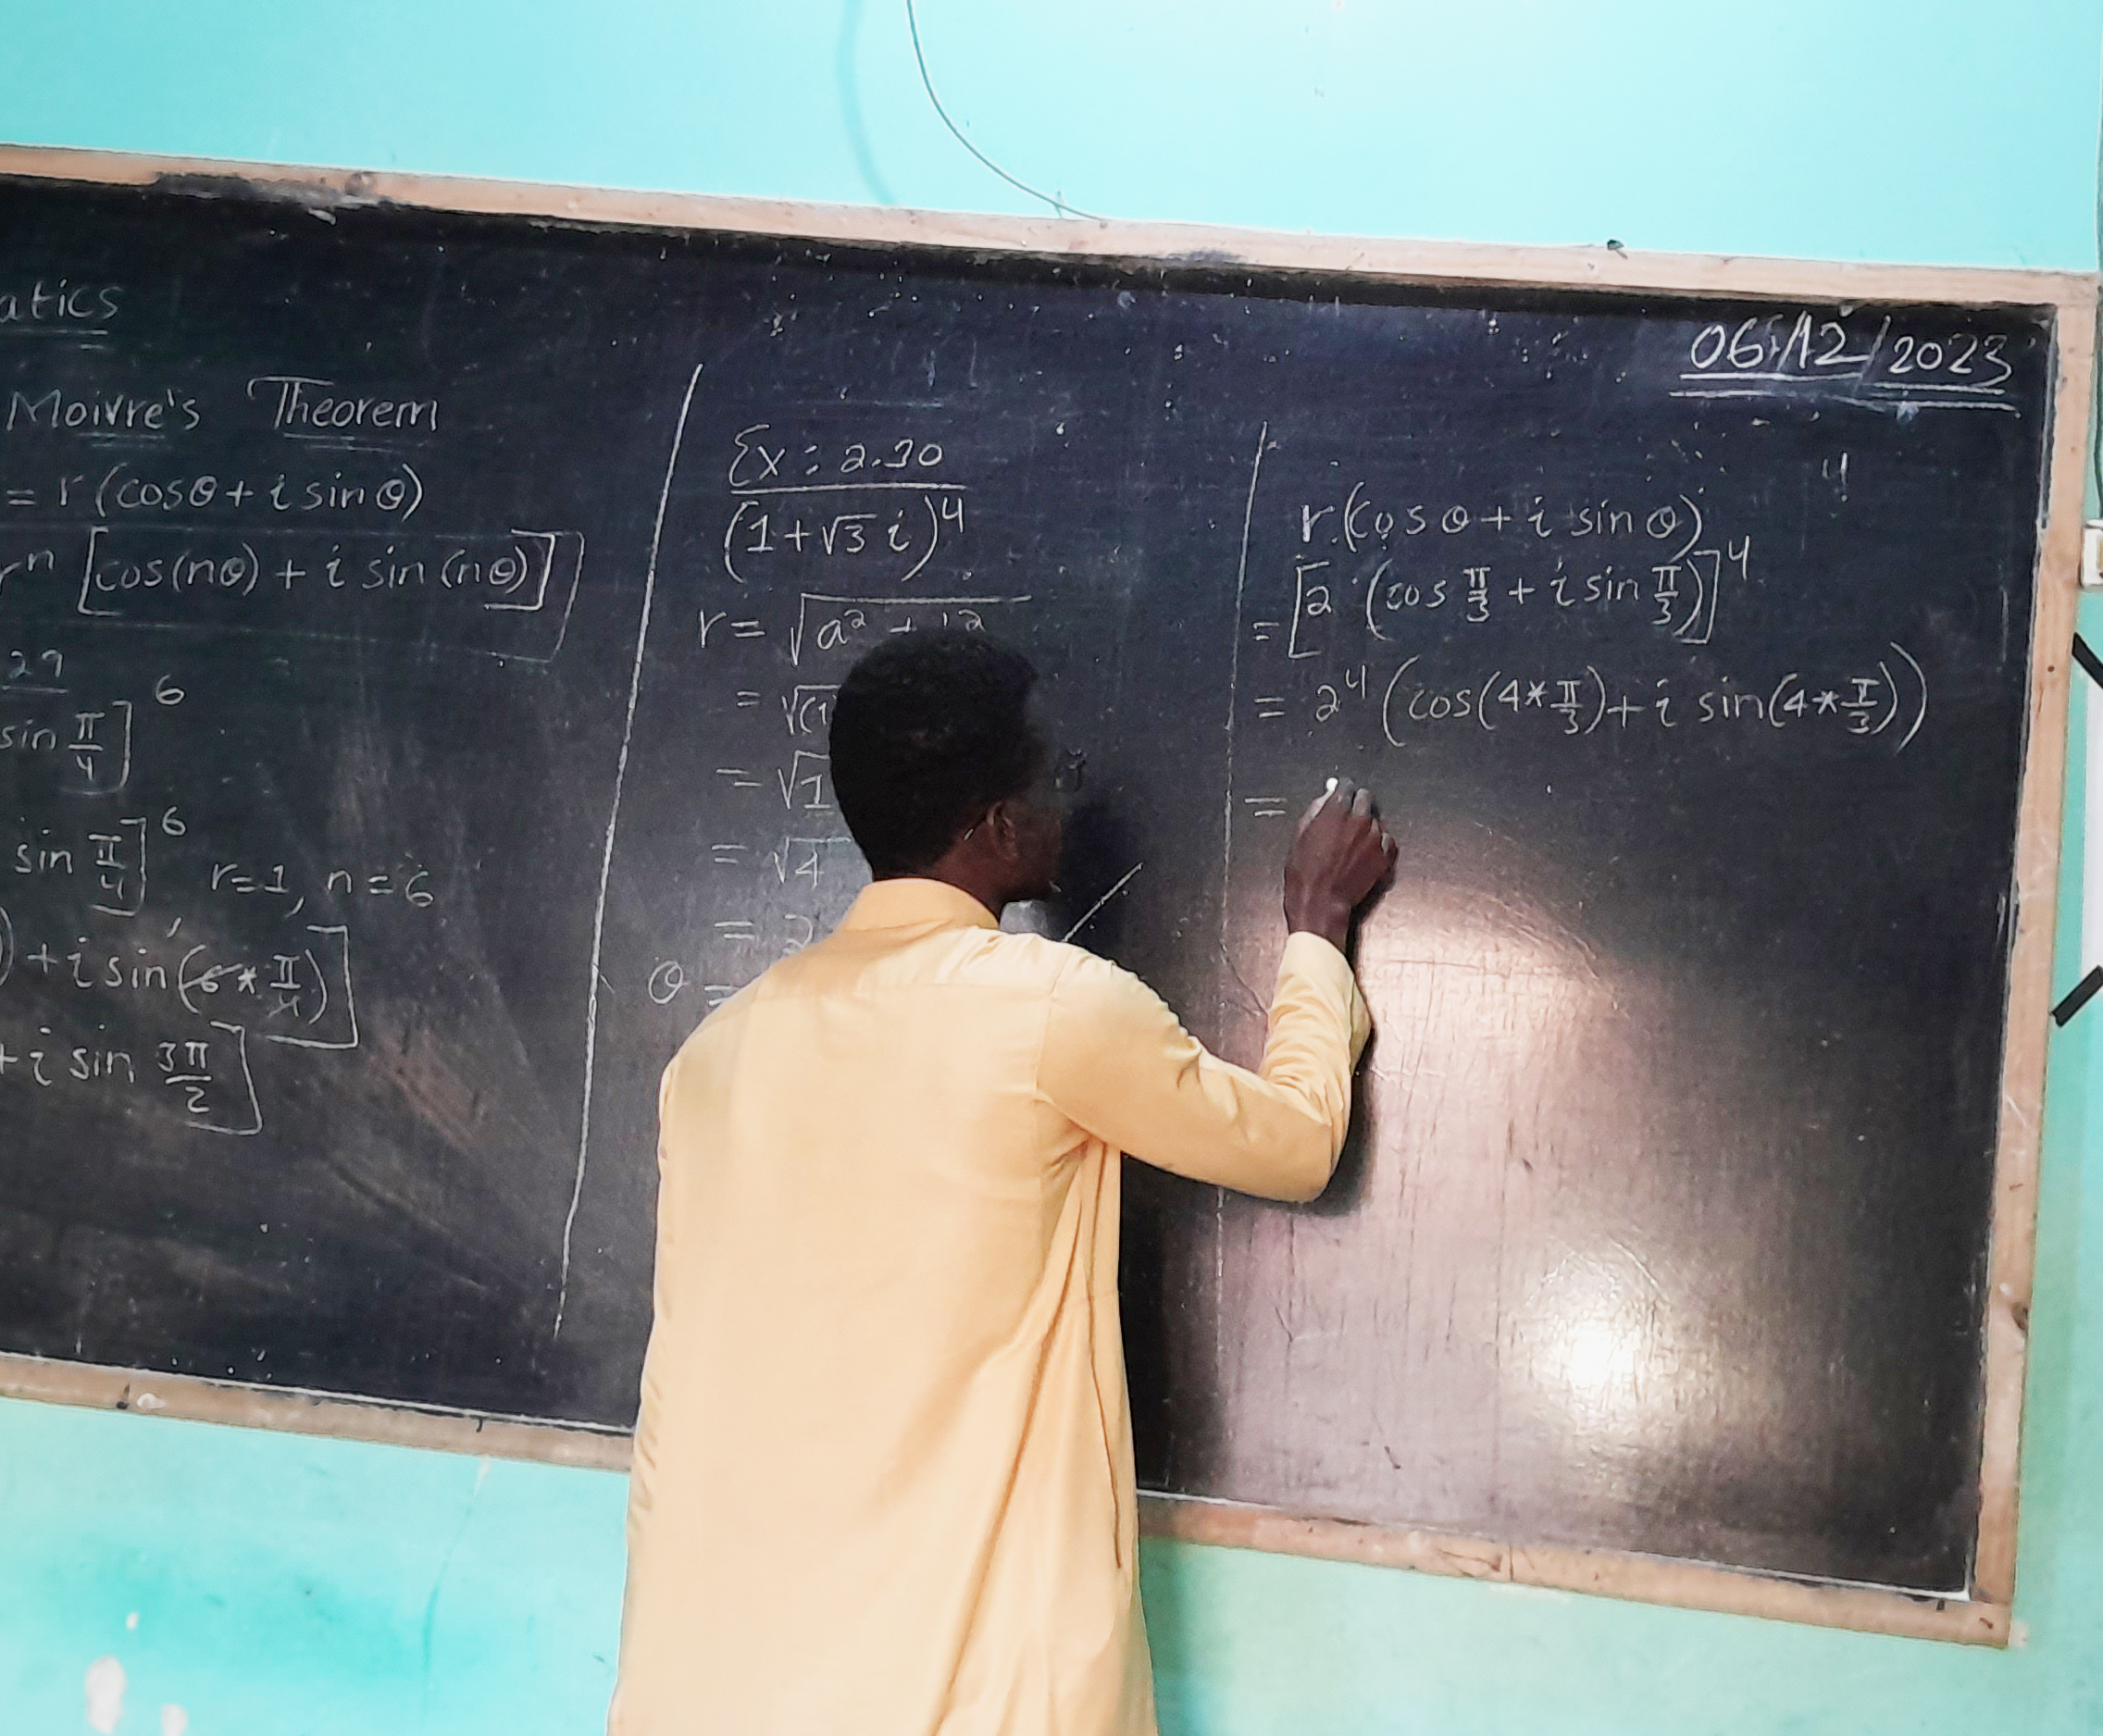 atics
Moivre's Theorem
= r (cosθ + i sin θ)
rⁿ [cos(nθ) + i sin (nθ)]
29
sin π/4]⁶
sin π/4]⁶ r=1, n=6
) + i sin(6 * π/4)]
+ i sin 3π/2]
Ex: 2.30
(1+√3 i)⁴
r = √a² +
= √(1
= √1
= √4
= 2
θ =
06/12/2023
4
r (cosθ + i sinθ)
= [2 (cos π/3 + i sin π/3)]⁴
= 2⁴ (cos(4*π/3) + i sin(4*π/3))
=